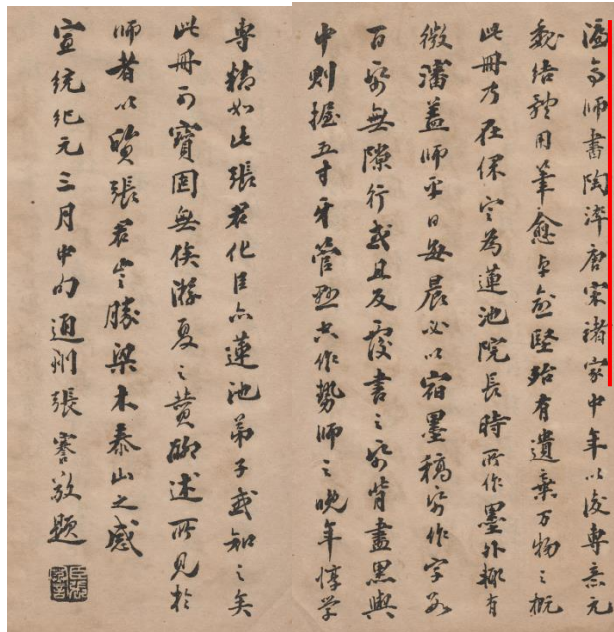 濂亭師書陶淬唐宋諸家中年以後專意元
魏結體用筆愈卓愈堅殆有遺棄万物之概
此冊乃在保定為蓮池院長時所作墨外輒有
微瀋蓋師平日每晨必以宿墨稿紙作字數
百紙無隙行或且反覆書之紙背盡黑輿
中則握五寸牙管懸空作勢師之晚年惇學
專精如此張君化臣亦蓮池弟子或知之矣
此冊可寶固無俟游夏之贊聊述所見於
師者以質張君豈勝梁木泰山之感
宣統紀元三月中旬通州張謇敬題